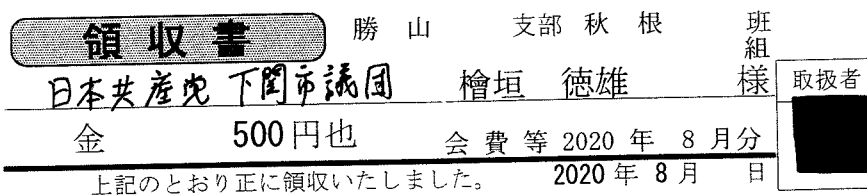 領収書 勝山 支部 秋根 班組
日本共産党 下関市議団 檜垣 徳雄 様 取扱者
金 500円也 会費等 2020年 8月分
上記のとおり正に領収いたしました。 2020年 8月 日